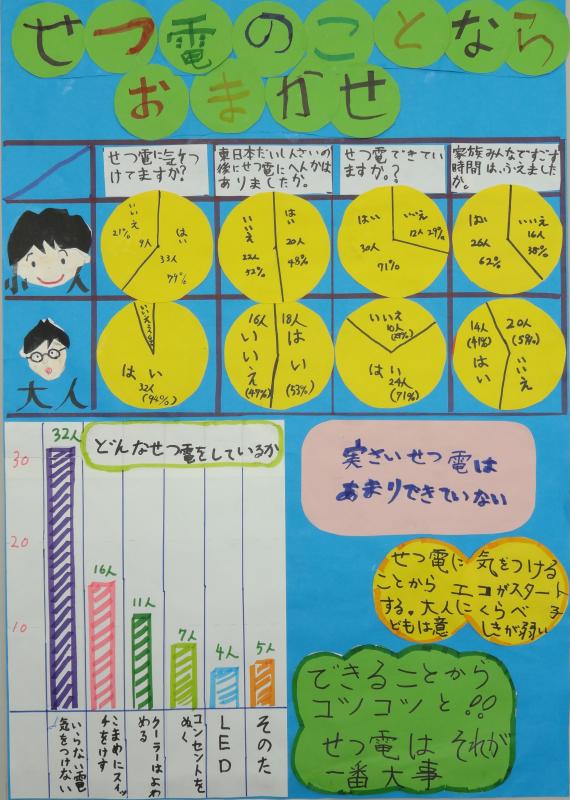 せつ電のことなら
おまかせ
せつ電に気をつ
けてますか?
東日本だいしんさいの
後にせつ電にへんかは
ありましたか。
せつ電できてい
ますか。?
家族みんなですごす
時間は、ふえました
か。
小人
いいえ
21%
9人
はい
33人
79%
いいえ
22人
52%
はい
20人
48%
はい
30人
71%
いいえ
12人 29%
はい
26人
62%
いいえ
16人
38%
大人
いいえ
はい
32人
(94%)
16人
いいえ
(47%)
18人
はい
(53%)
いいえ
10人
(29%)
はい
24人
(71%)
14人
(41%)
はい
20人
(59%)
いいえ
どんなせつ電をしているか
30
20
10
32人
16人
11人
7人
4人
5人
いらない電
気をつけない
こまめにスイッ
チをけす
クーラーはよわ
める
コンセントを
ぬく
LED
そのた
実さいせつ電は
あまりできていない
せつ電に気をつける
ことからエコがスタート
する。大人にくらべ子
どもは意しきが弱い
できることから
コツコツと!!
せつ電はそれが
一番大事